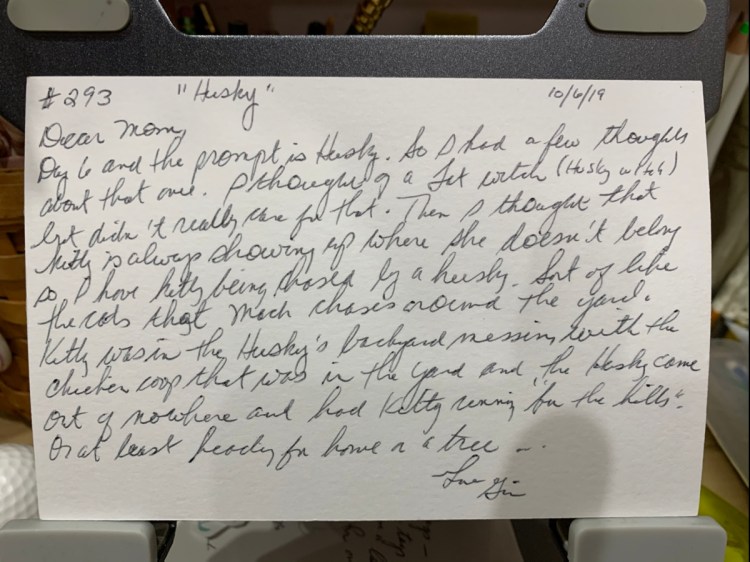 #293 "Husky" 10/6/19
Dear Mom,
Day 6 and the prompt is Husky. So I had a few thoughts
about that one. I thought of a fat witch (Husky witch)
but didn't really care for that. Then I thought that
Kitty is always showing up where she doesn't belong
so I have Kitty being chased by a husky. Sort of like
the cats that Mach chases around the yard.
Kitty was in the Husky's backyard messing with the
chicken coop that was in the yard and the Husky came
out of nowhere and had Kitty running "for the hills".
Or at least heading for home or a tree...
Love